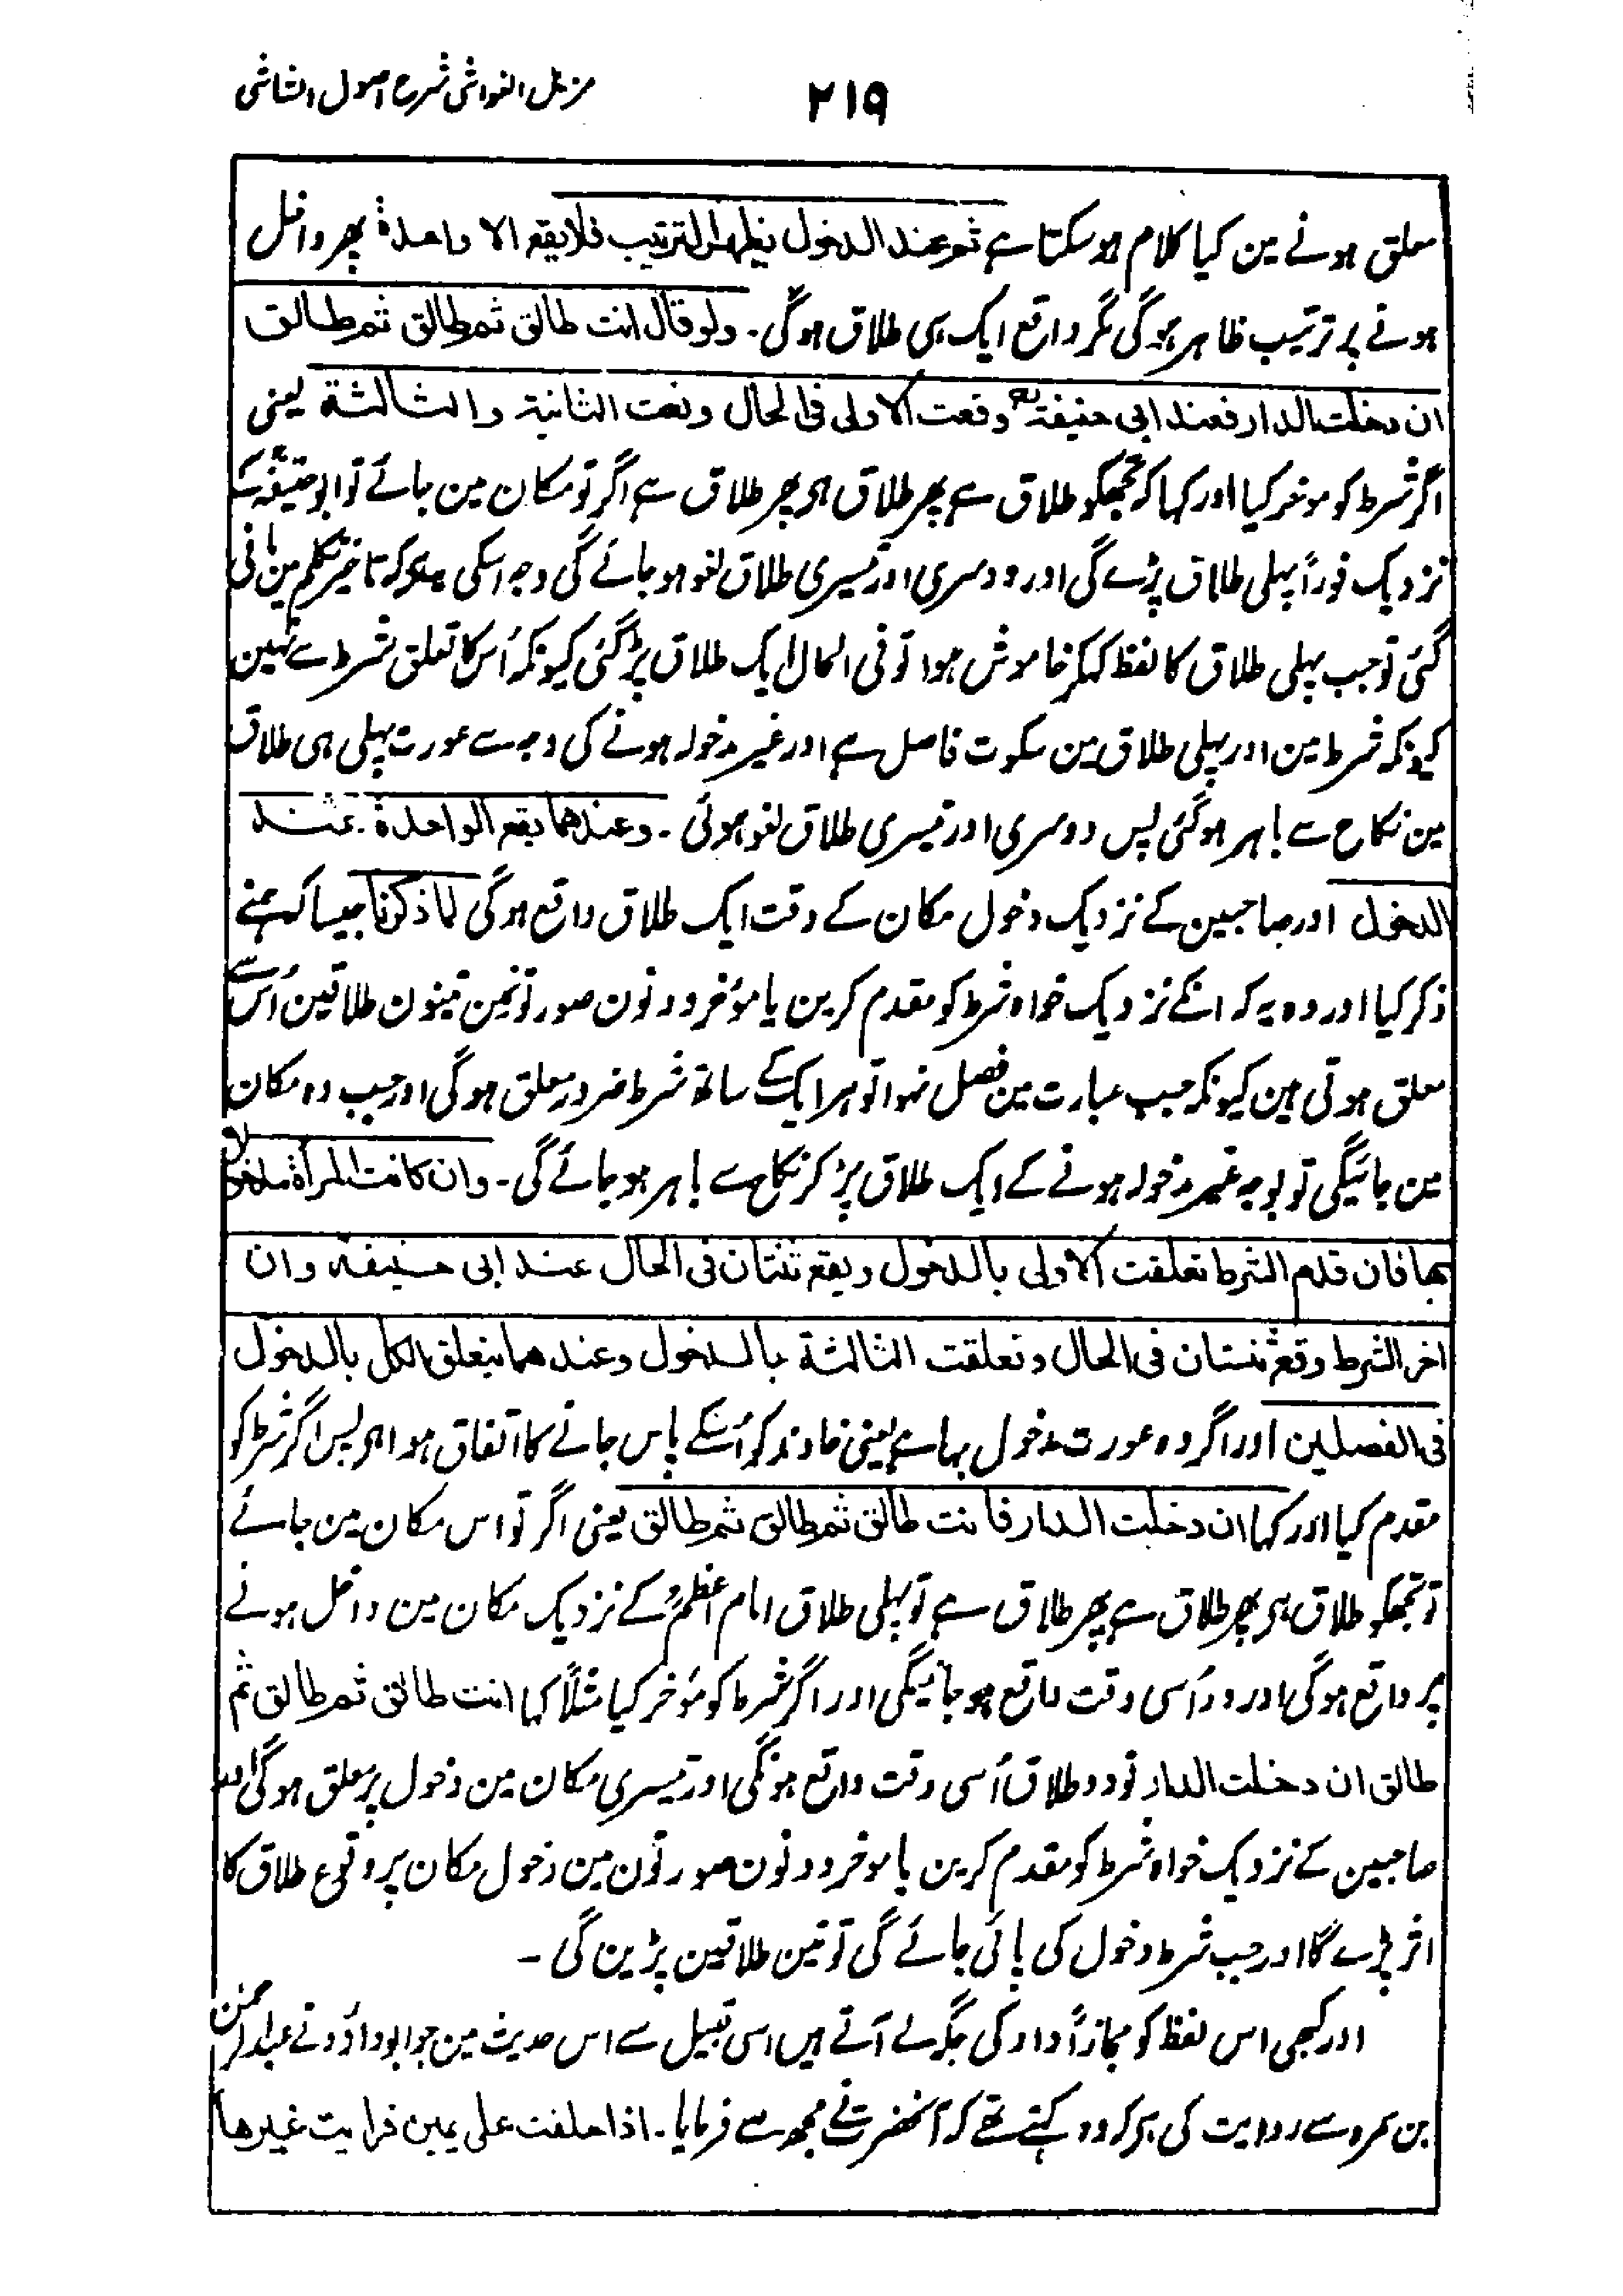 مزیل الغواشی شرح اصول الشاشی
۲۱۹
معلق ہونے مین کیا کلام ہو سکتا ہے ثم عند الدخول یظهر الترتیب فلا یقع الا واحدة پھر داخل
ہونے پر ترتیب ظاہر ہوگی مگر واقع ایک ہی طلاق ہوگی۔ ولو قال انت طالق ثم طالق ثم طالق
ان دخلت الدار فعند ابی حنیفۃ رح وقعت الاولی فی الحال ولغت الثانیة والثالثة یعنی
اگر شرط کو موخر کیا اور کہا کہ تجھکو طلاق ہے پھر طلاق ہی پھر طلاق ہے اگر تو مکان مین جائے تو ابو حنیفہؒ کے
نزدیک فوراً پہلی طلاق پڑے گی اور دوسری اور تیسری طلاق لغو ہو جائے گی وجہ اسکی یہ کہ تاخیر تکلم مین مانی
گئی تو جب پہلی طلاق کا لفظ کہکر خاموش ہوا تو فی الحال ایک طلاق پڑ گئی کیونکہ اُس کا تعلق شرط سے نہین
کیونکہ شرط مین اور پہلی طلاق مین سکوت فاصل ہے اور غیر مدخولہ ہونے کی وجہ سے عورت پہلی ہی طلاق
مین نکاح سے باہر ہوگئی پس دوسری اور تیسری طلاق لغو ہوئی ۔ وعندهما یقع الواحدة عند
الدخول اور صاحبین کے نزدیک دخول مکان کے وقت ایک طلاق واقع ہوگی لما ذکرنا جیسا کہ ہمنے
ذکر کیا اور وہ یہ کہ انکے نزدیک خواہ شرط کو مقدم کرین یا مؤخر دونون صورتونمین تینون طلاقین اُس سے
معلق ہوتی ہین کیونکہ جب عبارت مین فصل نہوا تو ہر ایک کے ساتھ شرط ضرور معلق ہوگی اور جب وہ مکان
مین جائیگی تو بوجہ غیر مدخولہ ہونے کے ایک طلاق پڑ کر نکاح سے باہر ہو جائے گی۔ وان کانت المرأة مدخولا
بها فان قدم الشرط تعلقت الاولی بالدخول ویقع ثنتان فی الحال عند ابی حنیفة وان
اخر الشرط وقع ثنتان فی الحال وتعلقت الثالثة بالدخول وعندهما یتعلق الکل بالدخول
فی الفصلین اور اگر وہ عورت مدخول بہا ہے یعنی خاوند کو اُسکے پاس جانے کا اتفاق ہوا ہی پس اگر شرط کو
مقدم کیا اور کہا ان دخلت الدار فانت طالق ثم طالق ثم طالق یعنی اگر تو اس مکان مین جائے
تو تجھکو طلاق ہی پھر طلاق ہے پھر طلاق ہے تو پہلی طلاق امام اعظمؒ کے نزدیک مکان مین داخل ہونے
پر واقع ہوگی اور دو اُسی وقت واقع ہو جائینگی اور اگر شرط کو مؤخر کیا مثلاً کہا انت طالق ثم طالق ثم
طالق ان دخلت الدار تو دو طلاق اُسی وقت واقع ہونگی اور تیسری مکان مین دخول پر معلق ہوگی اور
صاحبین کے نزدیک خواہ شرط کو مقدم کرین یا موخر دونون صورتون مین دخول مکان پر وقوع طلاق کا
اثر پڑے گا اور جب شرط دخول کی پائی جائے گی تو تین طلاقین پڑین گی ۔
اور کبھی اس لفظ کو مجازاً واو کی جگہ لے آتے ہین اسی قبیل سے اس حدیث مین جو ابو داؤد نے عبدالرحمٰن
بن سمرہ سے روایت کی ہی کہ وہ کہتے تھے کہ آنحضرت نے مجھ سے فرمایا ۔ اذا حلفت علی یمین فرایت غیرها